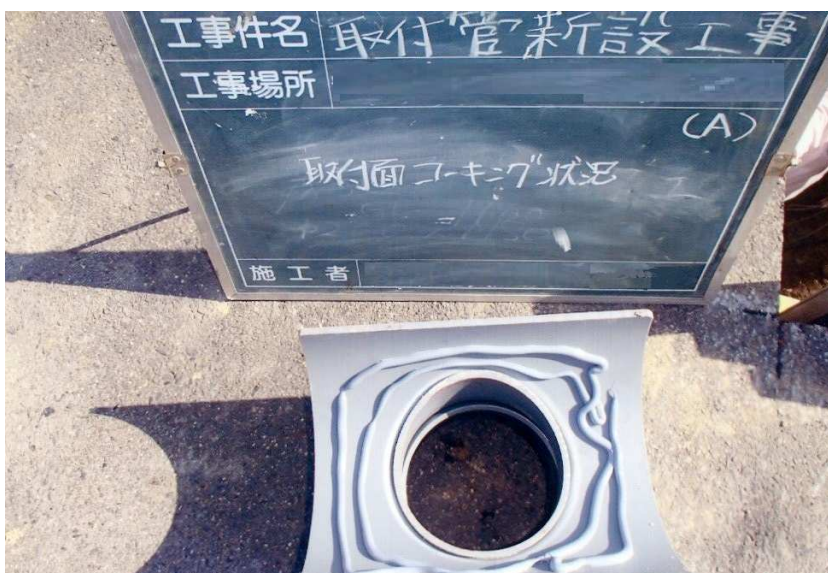 工事件名 取付管新設工事
工事場所
(A)
取付面コーキング状況
施工者